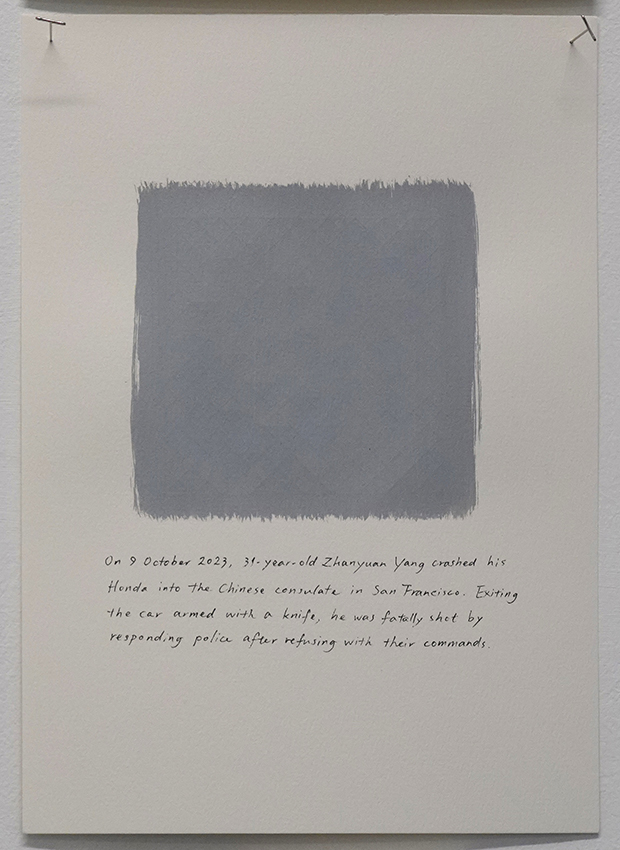 On 9 October 2023, 31-year-old Zhanyuan Yang crashed his
Honda into the Chinese consulate in San Francisco. Exiting
the car armed with a knife, he was fatally shot by
responding police after refusing with their commands.